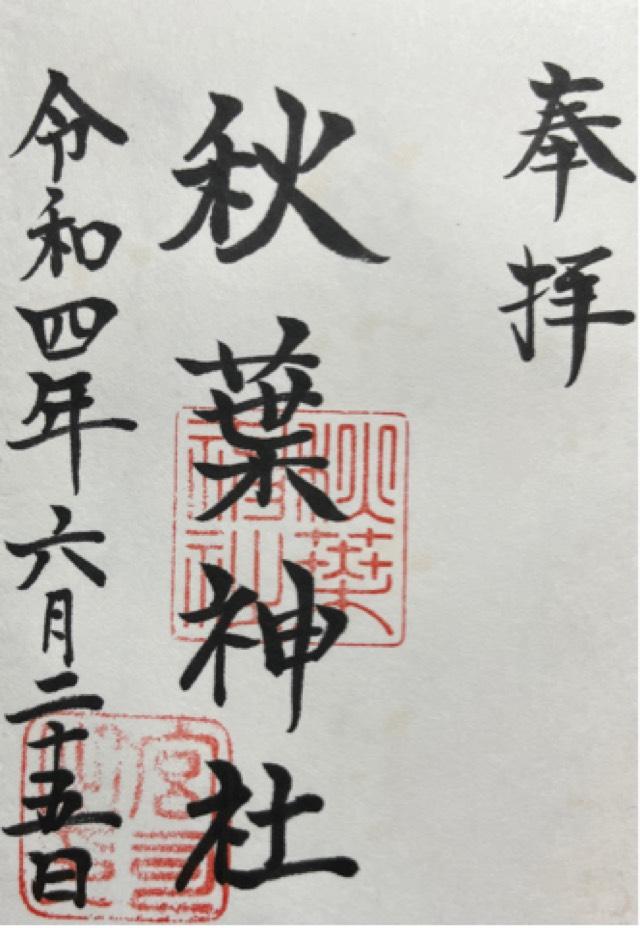 奉拝
秋葉神社
令和四年六月二十五日
秋葉
神社